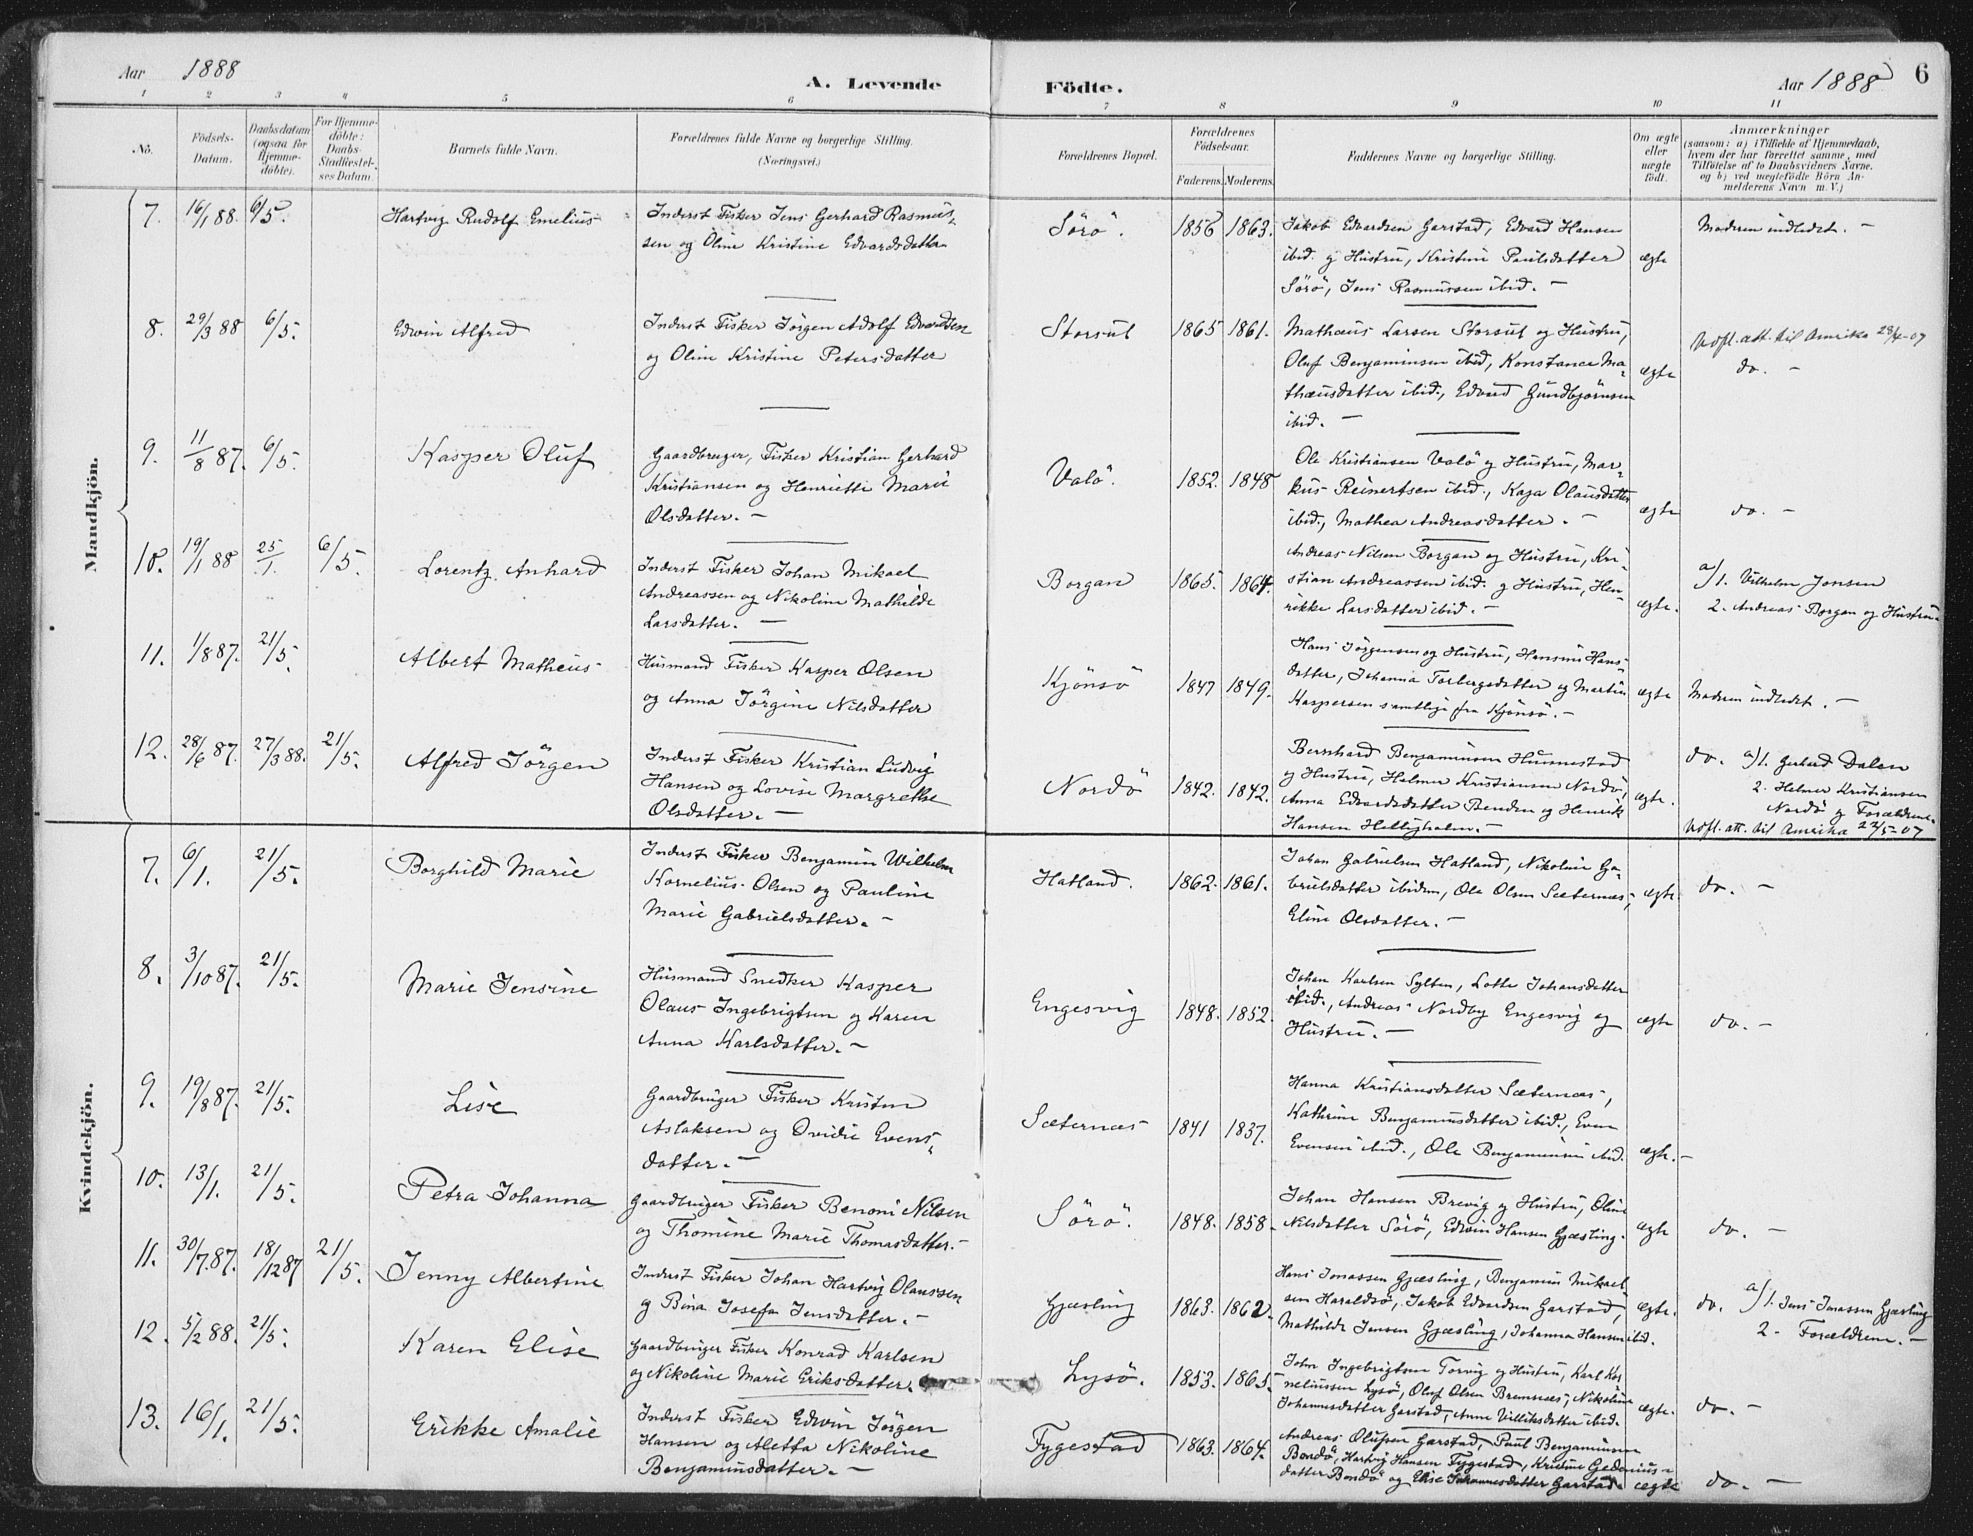 Aar 1888
A. Levende Födte.
Aar 1888
6
1 2 3 4 5 6 7 8 9 10 11
No.
Födsels-Datum.
Daabsdatum (ogsaa for Hjemme-döbte).
For Hjemme-döbte: Daabs-Stadfæstelses Datum.
Barnets fulde Navn.
Forældrenes fulde Navne og borgerlige Stilling.
(Næringsvei.)
Forældrenes Bopæl.
Forældrenes Födselsaar.
Faderens. Moderens.
Faddernes Navne og borgerlige Stilling.
Om ægte eller uægte födt.
Anmærkninger
(saasom: a) i Tilfælde af Hjemmedaab,
hvem der har forrettet samme, med
Tilföielse af to Daabsvidners Navne,
og b) ved uægtefödte Börn An-
melderens Navn m. V.)
Mandkjön.
7. 16/1 88 6/5. Hartvig Rudolf Emelius
Inderst Fisker Jens Gerhard Rasmus-
sen og Oline Kristine Edvardsdatter
Sörö. 1856 1863.
Jakob Edvardsen Garstad, Edvard Hansen
ibid. og Hustru, Kristine Paulsdatter
Sörö, Jens Rasmussen ibid. —
ægte
Moderen indledet. —
8. 29/3 88 6/5. Edwin Alfred
Inderst Fisker Jörgen Adolf Edvardsen
og Oline Kristine Petersdatter
Storsul 1865 1861.
Mathæus Larsen Storsul og Hustru,
Oluf Benjaminsen ibid, Konstance Ma-
thæusdatter ibid., Edvard Gundbjörnsen
ibid. —
ægte
Udfl. att. til Amerika 23/4-07
do. —
9. 11/8 87. 6/5. Kasper Oluf
Gaardbruger, Fisker Kristian Gerhard
Kristiansen og Henriette Marie
Olsdatter. —
Valö. 1852. 1848
Ole Kristiansen Valö og Hustru, Mar-
kus Reinertsen ibid., Kaja Olausdatter
ibid., Mathea Andreasdatter. —
ægte
do. —
10. 19/1 88 25/1. 6/5. Lorentz Anhard
Inderst Fisker Johan Mikael
Andreassen og Nikoline Mathilde
Larsdatter. —
Borgan 1865. 1864.
Andreas Nilsen Borgan og Hustru, Kri-
stian Andreassen ibid. og Hustru, Hen-
rikke Larsdatter ibid. —
ægte.
a/1. Vilhelm Jonsen
2. Andreas Borgan og Hustru.
11. 1/8 87. 21/5. Albert Matheus
Husmand Fisker Kasper Olsen
og Anna Jörgine Nilsdatter
Kjönsö 1847 1849.
Hans Jörgensen og Hustru, Hansine Hans-
datter, Johanna Torbergsdatter og Martin
Kaspersen samtlige fra Kjönsö. —
ægte
Moderen indledet. —
12. 28/6 87. 27/3 88. 21/5. Alfred Jörgen
Inderst Fisker Kristian Ludvig
Hansen og Lovise Margrethe
Olsdatter. —
Nordö 1842. 1842.
Bernhard Benjaminsen Hunnestad
og Hustru, Helmer Kristiansen Nordö,
Anna Edvardsdatter Benden og Henrik
Hansen Helligholm. —
ægte.
do. a/1. Gerhard Dalen
2. Helmer Kristiansen
Nordö og Forældrene.
Udfl. att. til Amerika 22/5-07
Kvindekjön.
7. 6/1. 21/5. Borghild Marie
Inderst Fisker Benjamin Wilhelm
Kornelius Olsen og Pauline
Marie Gabrielsdatter. —
Hatland. 1862. 1861.
Johan Gabrielsen Hatland, Nikoline Ga-
brielsdatter ibidem, Ole Olsen Sæternæs,
Eline Olsdatter. —
ægte.
do. —
8. 3/10 87. 21/5. Marie Jensine
Husmand Snedker Kasper
Olaus Ingebrigtsen og Karen
Anna Karlsdatter. —
Engesvig 1848. 1852.
Johan Karlsen Sylten, Lotte Johansdatter
ibid., Andreas Nordby Engesvig og
Hustru. —
ægte
do. —
9. 19/8 87. 21/5. Lise
Gaardbruger Fisker Kristen
Aslaksen og Ovidie Evens-
datter. —
Sæternæs 1841 1837.
Hanna Kristiansdatter Sæternæs,
Kathrine Benjaminsdatter ibid., Even
Evensen ibid., Ole Benjaminsen ibid.
ægte. —
10. 13/1. 21/5. Petra Johanna
Gaardbruger Fisker Benoni Nilsen
og Thomine Marie Thomasdatter. —
Sörö. 1848. 1858
Johan Hansen Brevig og Hustru, Oline
Nilsdatter Sörö, Edvin Hansen Gjæsling.
ægte
do. —
11. 30/7 87. 18/12 87 21/5. Jenny Albertine
Inderst Fisker Johan Hartvig Olaussen
og Bina Josefa Jensdatter. —
Gjæsling 1863. 1862.
Hans Jonassen Gjæsling, Benjamin Mikael-
sen Haraldsö, Jakob Edvardsen Garstad,
Mathilde Jensen Gjæsling, Johanna Hansen ibid.
ægte.
do. a/1. Jens Jonassen Gjæsling
2. Forældrene. —
12. 5/2 88. 21/5. Karen Elise
Gaardbruger Fisker Konrad Karlsen
og Nikoline Marie Eriksdatter.
Lysö. 1853. 1865.
John Ingebrigtsen Torvig og Hustru, Karl Kor-
neliussen Lysö, Oluf Olsen Bremnes, Nikoline
Johannesdatter Garstad, Anne Villiksdatter ibid.
ægte.
do. —
13. 16/1. 21/5. Erikke Amalie
Inderst Fisker Edvin Jörgen
Hansen og Aletta Nikoline
Benjaminsdatter. —
Fygestad 1863. 1864.
Andreas Olufsen Garstad, Paul Benjaminsen
Bondö, Hartvig Hansen Fygestad, Kristine Gedenius-
datter Bondö og Elise Johannesdatter Garstad.
ægte
do. —